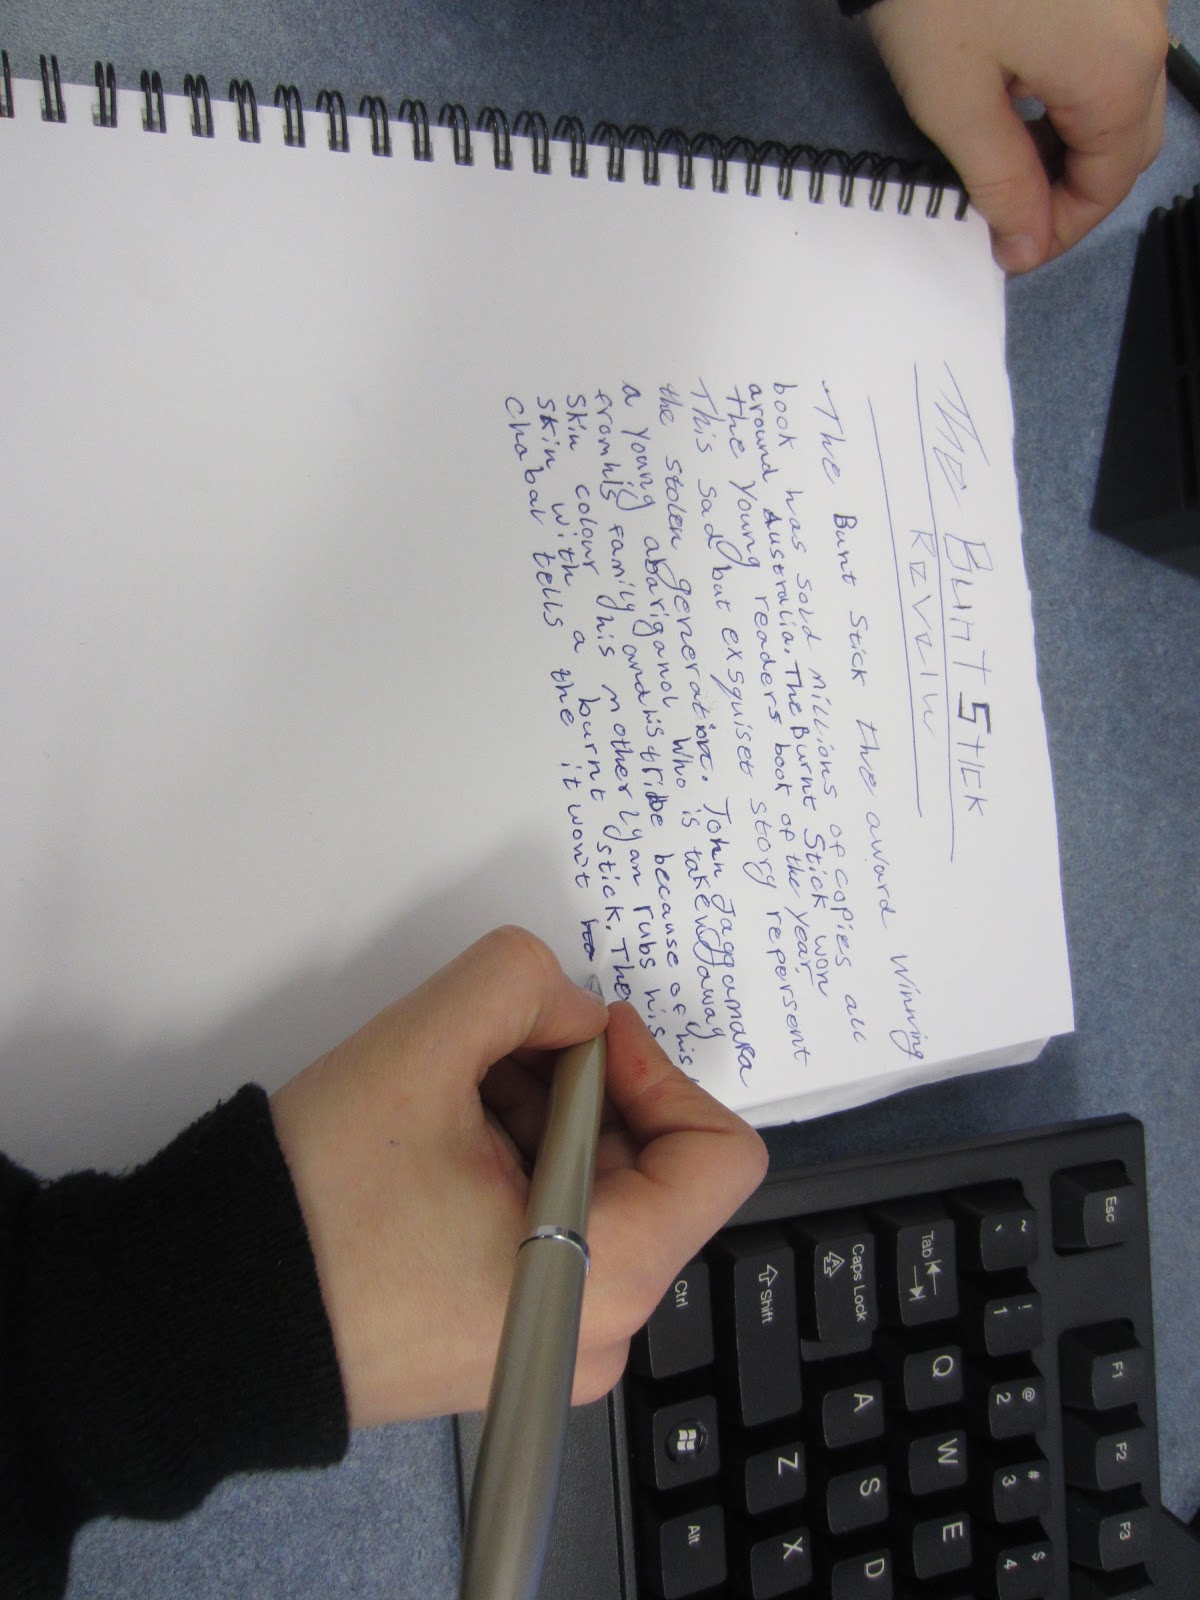 The Burnt Stick
Reveiw
The Bunt Stick the award winning
book has sold millions of copies all
around Australia. The Burnt Stick won
the young readers book of the year.
This sad but exsquiset story repersent
the stolen generation. John Jaggamara
a young abariganol who is taken away
from his family and his tribe because of his
skin colour his mother Lyan rubs his
skin with a burnt stick. The
Chabal tells the it won't
Esc
F1
F2
F3
~
`
!
1
@
2
#
3
$
4
Tab
Q
W
E
Caps Lock
A
A
S
D
Shift
Z
X
Ctrl
Alt